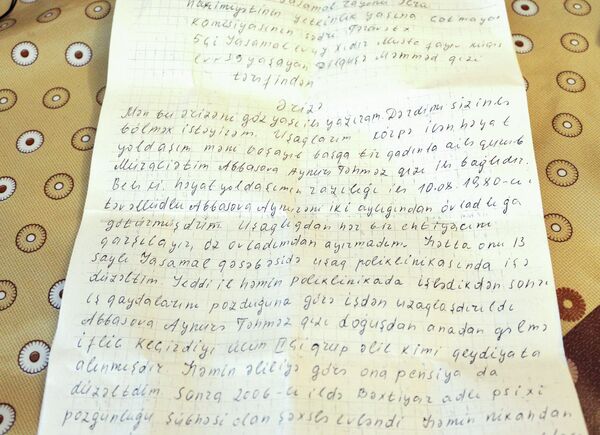 Yasamal rayonu İcra
hakimiyyətinin yetkinlik yaşına çatmayan
komissiyasının sədri
5ci Yasamal Mustafayev küçəsi
ev 19 yaşayan Məmməd qızı
tərəfindən
Ərizə
Mən bu ərizəni göz yaşı ilə yazıram Dərdimi sizinlə
bölmək istəyirəm. Uşaqlarım körpə ikən həyat
yoldaşım məni boşayıb başqa bir qadınla ailə qurub
Müraciətim Abbasova Aynurə Təhməz qızı ilə bağlıdır.
Belə ki, həyat yoldaşımın razılığı ilə 10.08.1980-ci i
təvəllüdlü Abbasova Aynurəni iki aylığından övladlığa
götürmüşdüm. Uşaqlığından hər bir ehtiyacını
qarşılayır, öz övladımdan ayırmadım. Hətta onu 13
saylı Yasamal qəsəbəsidə uşaq poliklinikasında işə
düzəltdim. Yeddi il həmin poliklinikada işlədikdən sonra
iş qaydalarını pozduğuna görə işdən uzaqlaşdırıldı
Abbasova Aynurə Təhməz qızı doğuşdan anadan gəlmə
iflic keçirdiyi üçün II ci qrup əlil kimi qeydiyata
alınmışdır. Həmin əlilliyə görə ona pensiya da
düzəltdim Sonra 2006-cı ildə Bəxtiyar adlı psixi
pozğunluğu şübhəsi olan şəxslə evləndi Həmin nikahdan